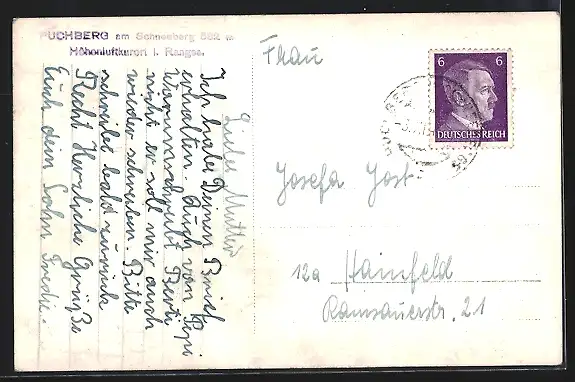 PUCHBERG am Schneeberg 582 m
Höhenluftkurort i. Ranges.
Liebe Mutter
Ich habe Deinen Brief
erhalten. Auch von Pepi
Warum schreibt Berti
nicht er soll mir auch
wieder schreiben. Bitte
schreibt bald zurück
Recht Herzliche Grüße
Euch dein Sohn Fredi.
Frau
6 6
DEUTSCHES REICH
Josefa Jost
12a Hainfeld
Ramsauerstr. 21